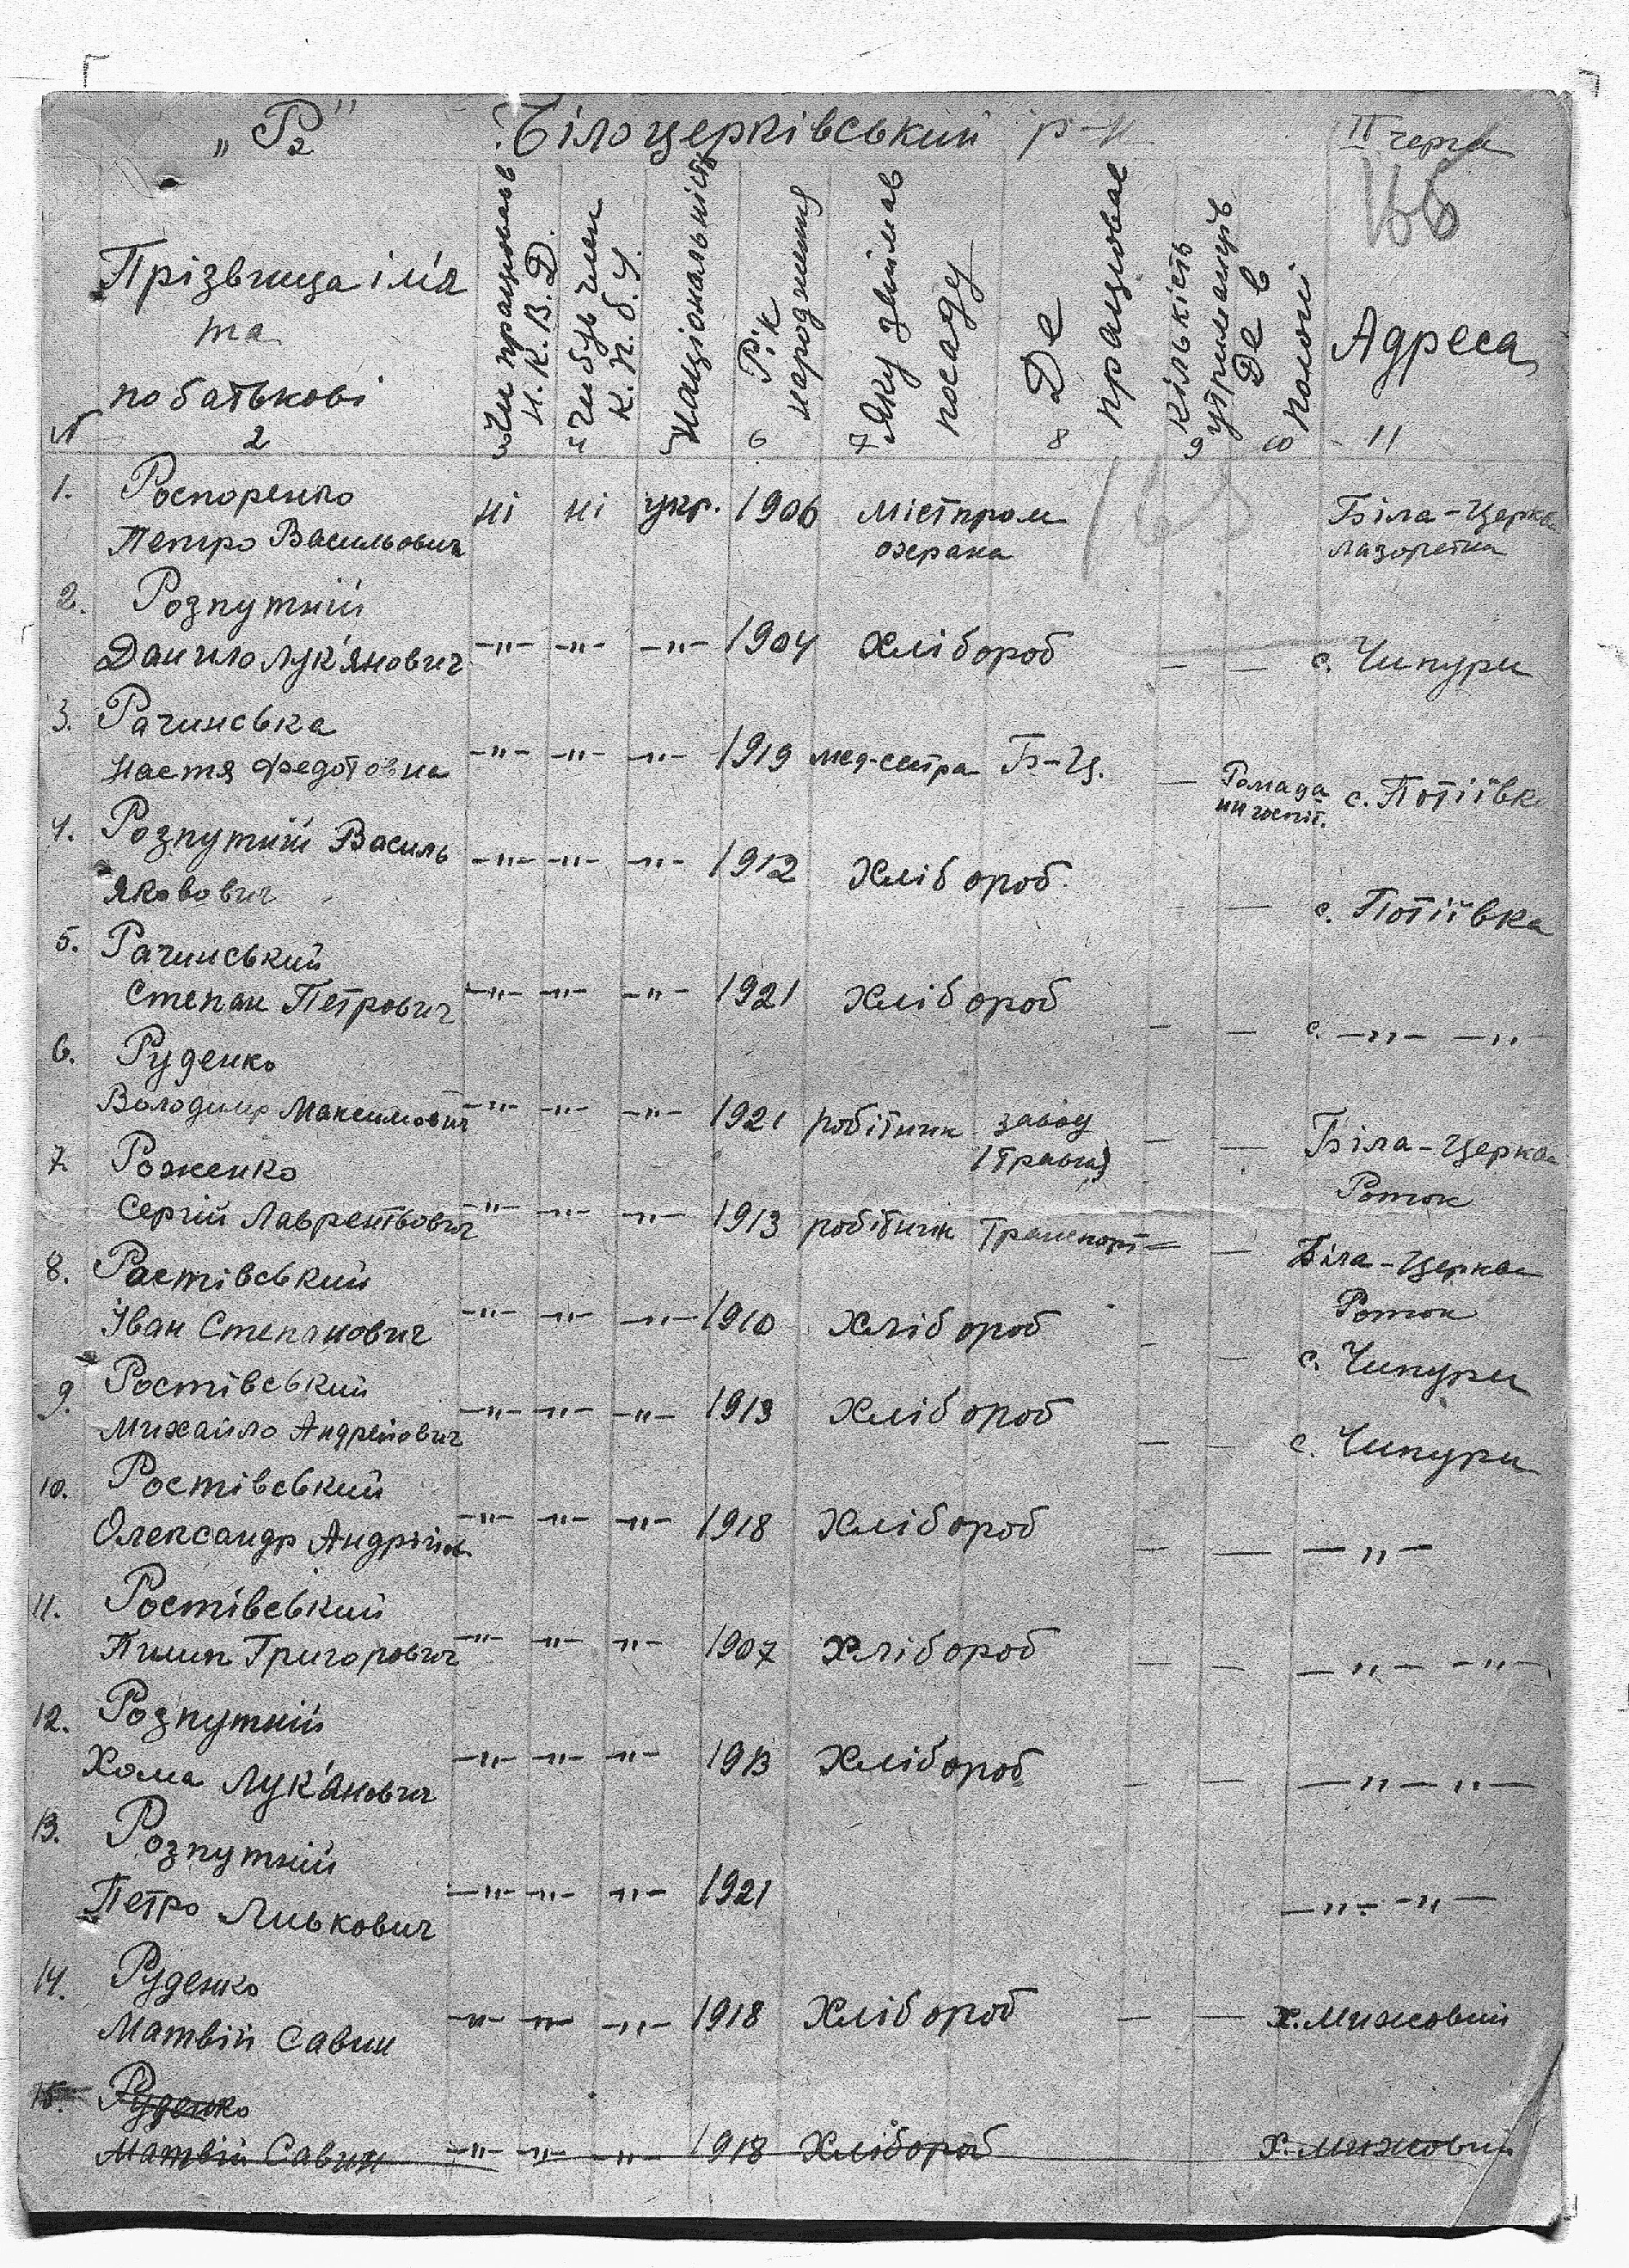 „Р" Білоцерківський р-н II черга
166
Прізвища ім'я
та
по батькові
Чи працював
Н.К.В.Д.
Чи був член
К.П.б.У.
Національність
Рік
народження
Яку займав
посаду
Де
працював
Кількість
утриманців
Де в
полоні
Адреса
№ 2 3 4 5 6 7 8 9 10 - 11
1. Роспоренко
Петро Васильович ні ні укр. 1906 містпром Біла-Церква
охрана
2. Розпутній
Данило Лук'янович -"- -"- -"- 1904 Хлібороб — — с. Чипури
3. Рачинська
Настя Федотовна -"- -"- -"- 1919 мед-сестра Б-Ц. — с. Потіївка
4. Розпутній Василь
Яковович -"- -"- -"- 1912 Хлібороб — — с. Потіївка
5. Рачинський
Степан Петрович -"- -"- -"- 1921 Хлібороб — — с. -"- -"-
6. Руденко
Володимир Максимович -"- -"- -"- 1921 робітник завод — — Біла-Церква
Роток
7. Роженко
Сергій Лаврентьович -"- -"- -"- 1913 робітник Транспорт — — Біла-Церква
Роток
8. Растівський
Іван Степанович -"- -"- -"- 1910 Хлібороб — — с. Чипури
9. Ростівський
Михайло Андрейович -"- -"- -"- 1913 Хлібороб — — с. Чипури
10. Ростівський
Олександр Андрійов. -"- -"- -"- 1918 Хлібороб — — -"-
11. Ростівський
Пилип Григорович -"- -"- -"- 1907 Хлібороб — — -"- -"-
12. Розпутній
Хома Лук'янович -"- -"- -"- 1913 Хлібороб — — -"- -"-
13. Розпутній
Петро Лиькович -"- -"- -"- 1921 -"- -"-
14. Руденко
Матвій Савин -"- -"- -"- 1918 Хлібороб — — х. Мижовий
15. Руденко
Матвій Савин -"- -"- -"- 1918 Хлібороб х. Мижовий